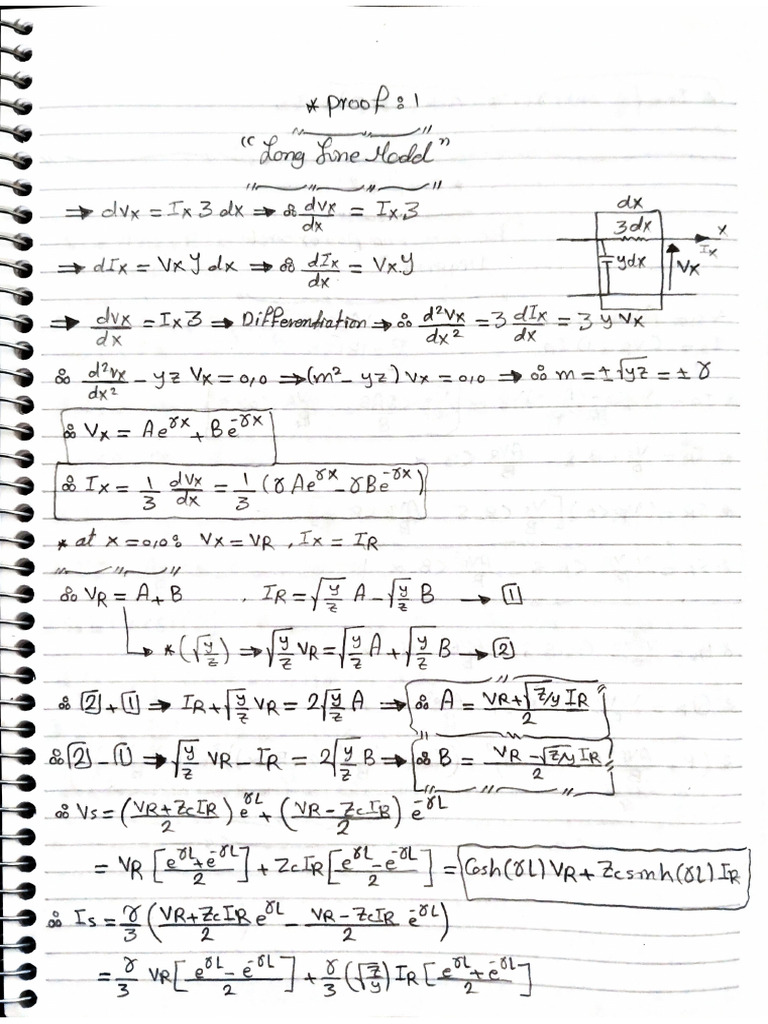 * Proof: 1
"Long Line Model"
⇒ dVx = Ix z dx ⇒ ∴ dVx/dx = Ix z
⇒ dIx = Vx y dx ⇒ ∴ dIx/dx = Vx y
dx
z dx
x
Ix
y dx
Vx
⇒ dVx/dx = Ix z ⇒ Differentiation ⇒ ∴ d²Vx/dx² = z dIx/dx = z y Vx
∴ d²Vx/dx² - yz Vx = 0,0 ⇒ (m² - yz) Vx = 0,0 ⇒ ∴ m = ±√yz = ± γ
∴ Vx = A e^γx + B e^-γx
∴ Ix = 1/z dVx/dx = 1/z (γ A e^γx - γ B e^-γx)
* at x = 0,0: Vx = VR , Ix = IR
∴ VR = A + B , IR = √(y/z) A - √(y/z) B → 1
* (√(y/z)) ⇒ √(y/z) VR = √(y/z) A + √(y/z) B → 2
∴ 2 + 1 ⇒ IR + √(y/z) VR = 2√(y/z) A ⇒ ∴ A = (VR + √(z/y) IR)/2
∴ 2 - 1 ⇒ √(y/z) VR - IR = 2√(y/z) B ⇒ ∴ B = (VR - √(z/y) IR)/2
∴ Vs = ((VR + Zc IR)/2) e^γL + ((VR - Zc IR)/2) e^-γL
= VR [(e^γL + e^-γL)/2] + Zc IR [(e^γL - e^-γL)/2] = Cosh(γL) VR + Zc sinh(γL) IR
∴ Is = γ/z ((VR + Zc IR)/2 e^γL - (VR - Zc IR)/2 e^-γL)
= γ/z VR [(e^γL - e^-γL)/2] + γ/z (√(z/y)) IR [(e^γL + e^-γL)/2]